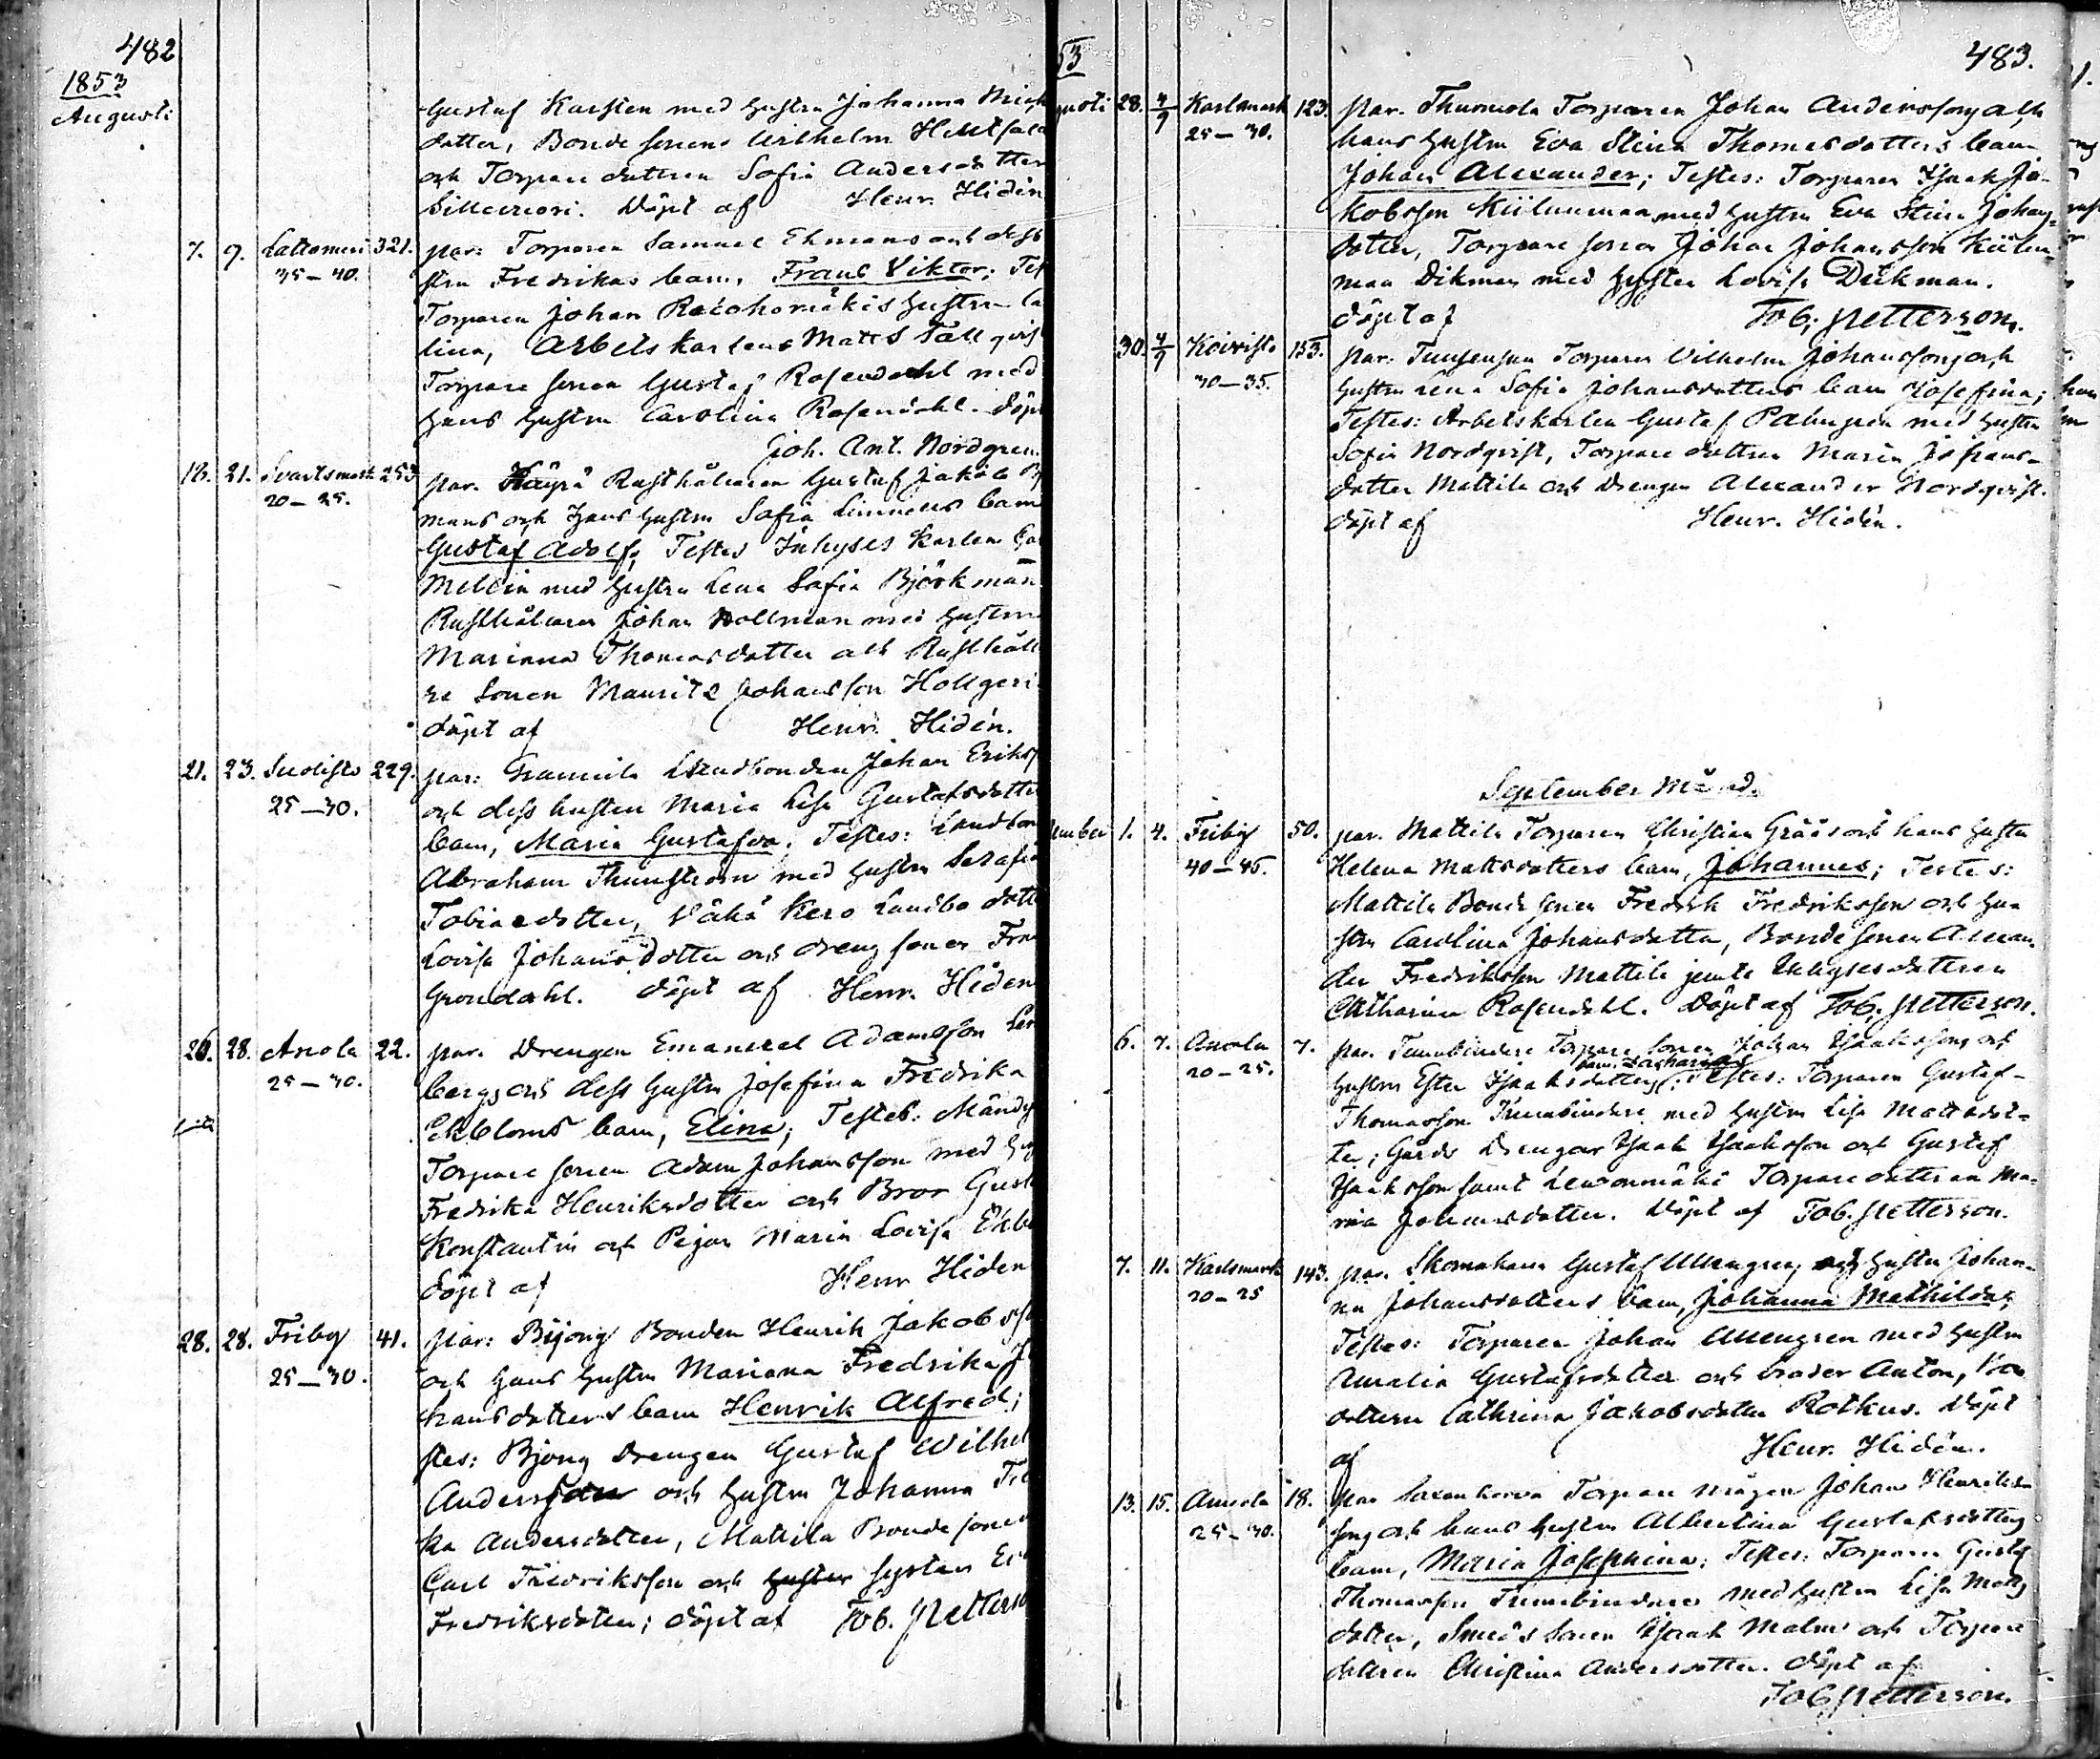 482
1853
Augusti
Gustaf Karsten med hustru Johanna Mich
dotter, Bonde sonen Wilhelm
och Torpare dottren Sofia Andersdotter
Döpt af Henr. Hidén
7. 9. Lattomeri 321. par: Torparen Samuel Ekmans och dess
35–40. stru Fredrikas barn, Frans Viktor; Tes
Torparen Johan hustru Ca
lina, Arbetskarlens Matts Tallqvist
Torpare sonen Gustaf Rosendahl med
hans hustru Carolina Rosendahl. Döpt
Joh. Ant. Nordgren.
18. 21. Svartsmark 253 par. Käyrä Rusthållaren Gustaf Jakob
20–25. mans och hans hustru Sofia barn
Gustaf Adolf; Testes Inhyses karlen
med hustru Lena Sofia Björkman
Rusthållaren Johan Hollman med hustru
Marianna Thomasdotter och Rusthålla
re Sonen Maurits Johansson
döpt af Henr. Hidén.
21. 23. Suolisto 229. par: Landbonden Johan Eriks
25–30. och dess hustru Maria Lisa Gustafsdotter
barn, Maria Gustafva. Testes: Landbon
Abraham Thunström med hustru Serafia
Tobiaedotter, Vähä Kero Landbo dott
Lovisa Johansdotter och dreng sonen Fre
Grondahl. döpt af Henr. Hiden
26. 28. Anola 22. par. Drengen Emanuel Adamsson
25–30. bergs och dess hustru Josefina Fredrika
Ekbloms barn, Elina; Testes:
Torpare sonen Adam Johansson med hu
Fredrika Henriksdotter och Bror Gust
Konstantin och Pigan Maria Lovisa Ekb
döpt af Henr Hiden
28. 28. Friby 41. par: Björny Bonden Henrik Jakobss
25–30. och hans hustru Mariana Fredrika Jo
hansdotters barn Henrik Alfred;
stes: Björny Drengen Gustaf Wilhel
Andersson och hustru Johanna
ka Andersdotter, Mattila Bonde sonen
Carl Fredriksson och hustru systern
Fredriksdotter; döpt af Tob. Petterso
53
483.
gusti 28. 4/9 Karlsmark 123. par. Thurmola Torparen Johan Anderssons och
25–30. hans hustru Eva Stina Thomasdotters barn
Johan Alexander; Testes: Torparen Isaak Ja-
kobsson Kiilunmaa med hustru Eva Stina Johans-
dotter, Torpare sonen Johan Johansson Kiilun-
maa Dikman med hustru Lovisa Dickman.
döpt af Tob. Petterson.
30. 4/9 Koivisto 153. par: Torparen Vilhelm Johanssons och
30–35. hustru Lena Sofia Johansdotters barn Josefina;
Testes: Arbetskarlen Gustaf Palmgren med hustru
Sofia Nordqvist, Torpare dottren Maria Johans-
dotter Mattila och Drengen Alexander Nordqvist.
döpt af Henr. Hidén.
September Månad.
tember 1. 4. Friby 50. par. Mattila Torparen Christian Gråås och hans hustru
40–45. Helena Mattsdotters barn, Johannes; Testes:
Mattila Bonde sonen Fredrik Fredriksson och hu
stru Carolina Johansdotter, Bonde sonen Alexan
der Fredriksson Mattila jemte Inhysesdottren
Catharina Rosendahl. Döpt af Tob. Petterson.
6. 7. Anola 7. par. Tunnbindare Torpare sonen Johan Isaakssons och
20–25. hustru Ester Isaaksdotters barn Zacharias; Testes: Torparen Gustaf
Thomasson Tunnbindare med hustru Lisa Mattsdot-
ter; Gårds Drengar Isaak Isaaksson och Gustaf
Isaaksson samt Levonmäki Torpare dottren Ma-
ria Johansdotter. Döpt af Tob. Petterson.
7. 11. Karlsmark 143. par. Skomakaren Gustaf Allengren och hustru Johan-
20–25 na Johansdotters barn, Johanna Mathilda;
Testes: Torparen Johan Allengren med hustru
Amalia Gustafsdotter och broder Anton,
dottren Cathrina Jakobsdotter Rotkus. Döpt
af Henr. Hidén.
13. 15. Anola 18. par Torpare mågen Johan Henriks
25–30. sons och hans hustru Albertina Gustafsdotters
barn, Maria Josephina; Testes: Torparen Gustaf
Thomasson Tunnbindare med hustru Lisa Matts
dotter, Smeds sonen Isaak Malm och Torpare
dottren Christina Andersdotter. döpt af
Tob Petterson.